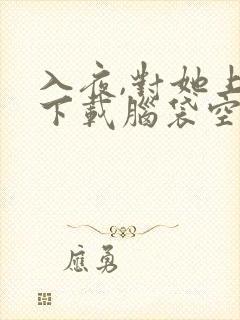 入夜,對她上
下載腦袋空
應勇